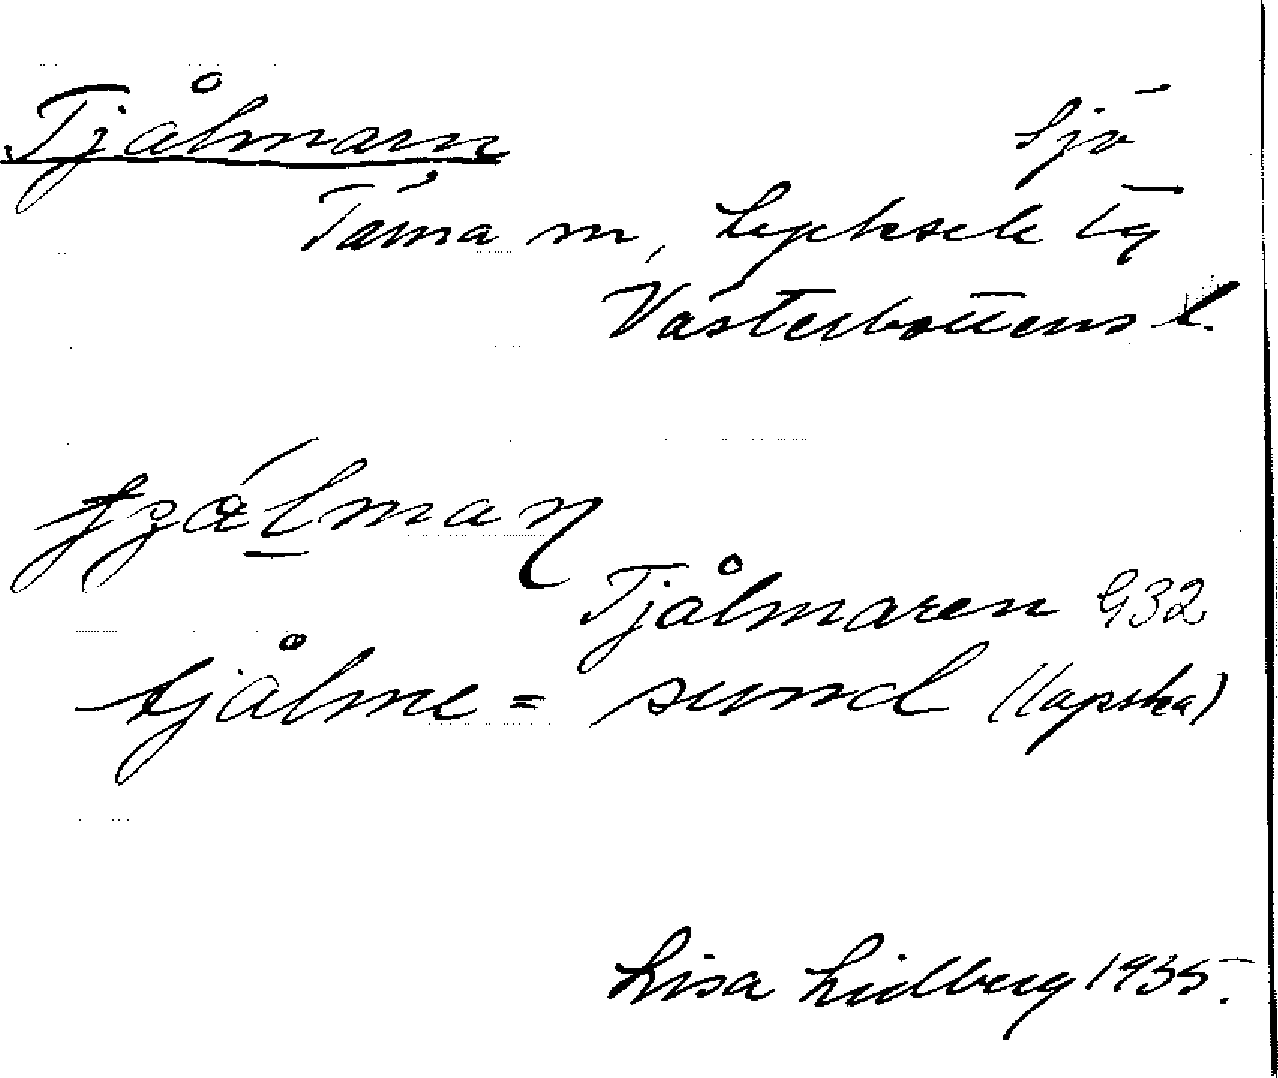 Tjålmarn Sjö
Tärna sn, Lycksele tg
Västerbottens l.
Tjålmaren G32
tjålme = sund (lapska)
Lisa Lidberg 1935.